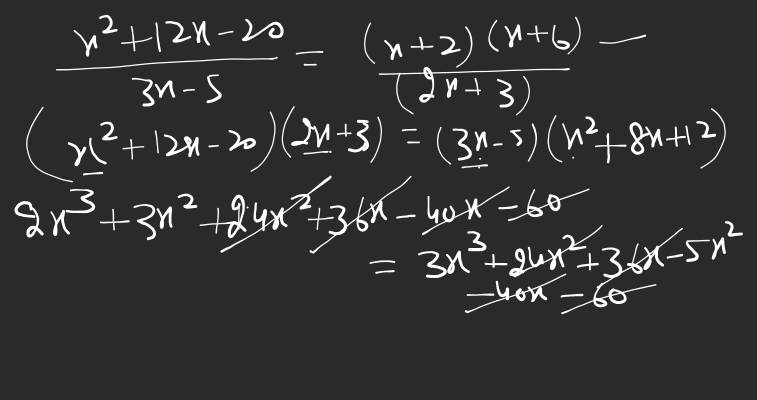 x²+12x-20 / 3x-5 = (x+2)(x+6) / (2x+3) —
(x²+12x-20)(2x+3) = (3x-5)(x²+8x+12)
2x³+3x²+24x²+36x-40x-60
= 3x³+24x²+36x-5x²
-40x-60